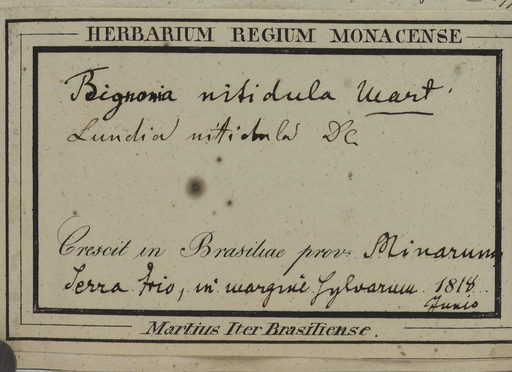 HERBARIUM REGIUM MONACENSE
Bignonia nitidula Mart.
Lundia nitidula DC
Crescit in Brasiliae prov. Minarum,
Serra Frio, in margine Sylvarum 1818.
Junio
Martius Iter Brasiliense.